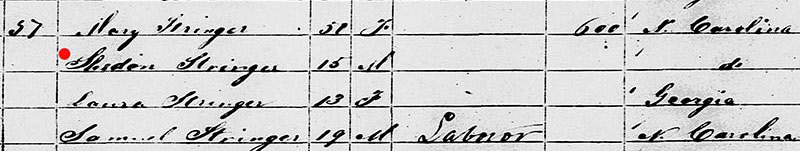 57 Mary Stringer 51 F 600 N. Carolina
Shedon Stringer 15 M do
Laura Stringer 13 F Georgia
Samuel Stringer 19 M Laboror N. Carolina